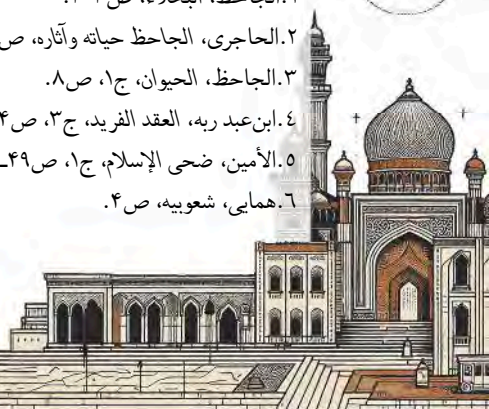 ٢.الحاجری، الجاحظ حیاته وآثاره، ص
٣.الجاحظ، الحیوان، ج١، ص٨.
٤.ابن‌عبد ربه، العقد الفرید، ج٣، ص۴
٥.الأمین، ضحی الإسلام، ج١، ص۴٩ـ
٦.همایی، شعوبیه، ص۴.